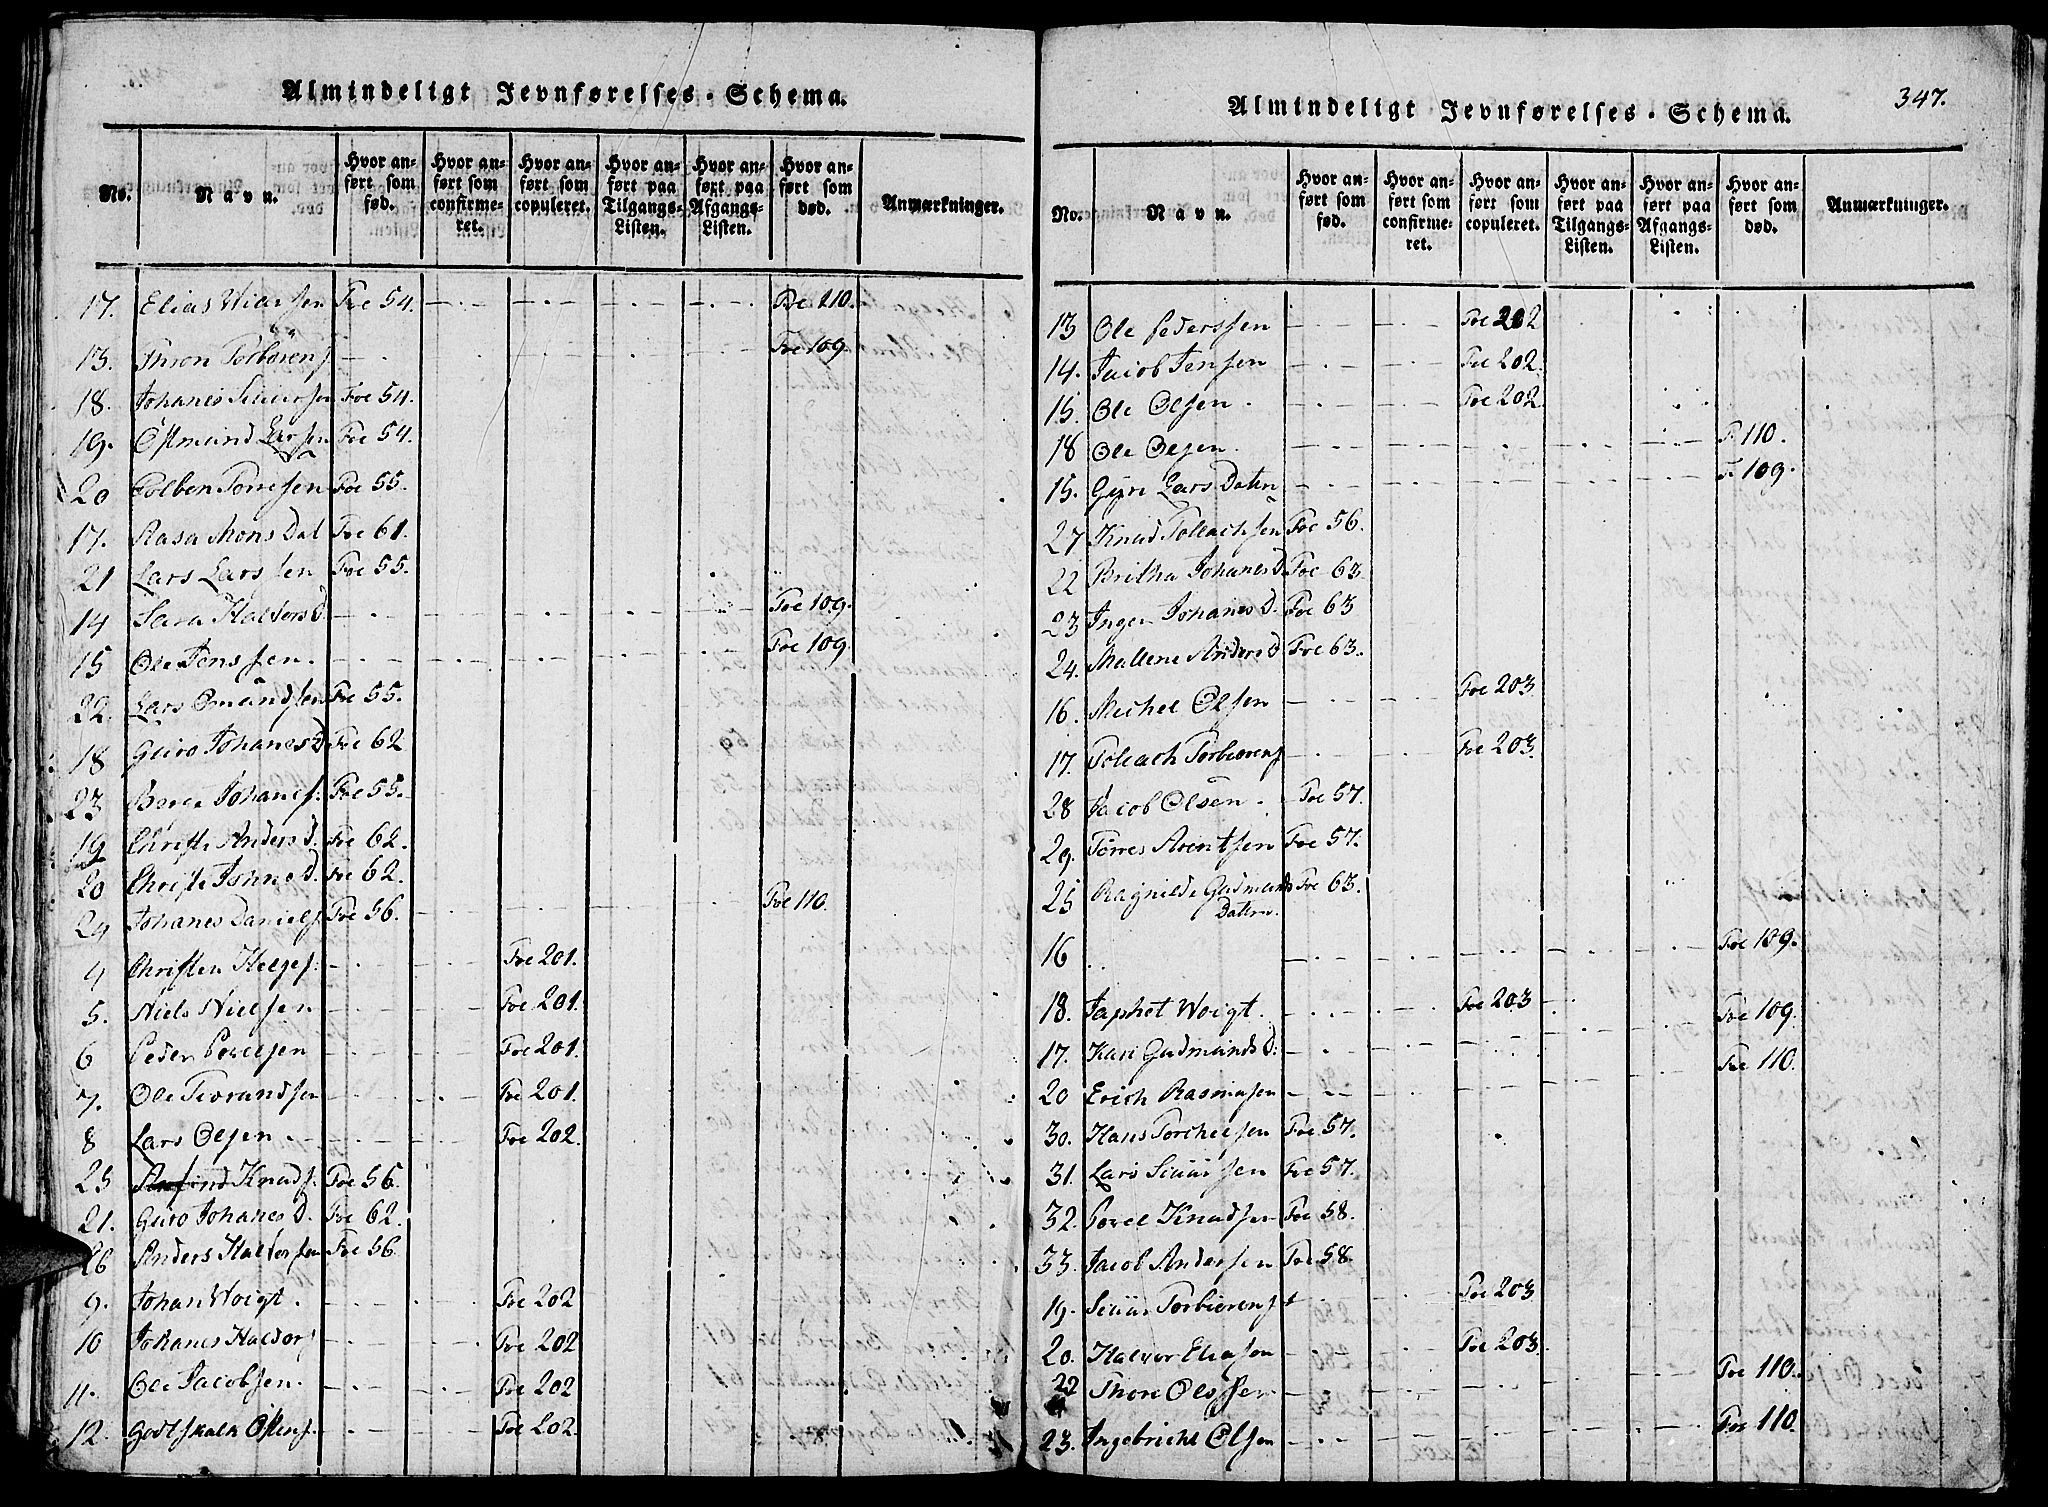 Almindeligt Jevnførelses-Schema.
No. Navn. Hvor anført som fød. Hvor anført som confirmeret. Hvor anført som copuleret. Hvor anført paa Tilgangs-Listen. Hvor anført paa Afgangs-Listen. Hvor anført som død. Anmærkninger.
17. Elias Foe 54. Foe 110.
13. Thron Torbørens Foe 109.
18. Johanes Siuersen Foe 54.
19. Østmund Larsen Foe 54.
20 Tolben Torresen Foe 55.
17. Aasa Mons Dat Foe 61.
21 Lars Larssen Foe 55.
14 Sara Halvors D. Foe 109.
15 Ole Jenssen. Foe 109.
22. Lars Omundsen Foe 55.
18 Guro Johanes D. Foe 62
23 Berge Johanes. Foe 55.
19 Christi Anders D. Foe 62.
20 Christi Johne D. Foe 62.
24 Johanes Daniels. Foe 56. Foe 110.
4 Christen Helges. Foe 201.
5. Niels Nielsen Foe 201.
6 Peder Povelsen Foe 201.
7. Ole Tiorandsen Foe 201.
8 Lars Olsen. Foe 202.
25 Knuds. Foe 56.
21. Guro Johanes D. Foe 62.
26 Anders Halvorsen Foe 56.
9. Johan Woigt. Foe 202
10 Johanes Haldors Foe 202
11. Ole Jacobsen. Foe 202
12. Godtskalk Østens. Foe 202.
Almindeligt Jevnførelses-Schema.
347.
No. Navn. Hvor anført som fød. Hvor anført som confirmeret. Hvor anført som copuleret. Hvor anført paa Tilgangs-Listen. Hvor anført paa Afgangs-Listen. Hvor anført som død. Anmærkninger.
13 Ole Pederssen Foe 202
14. Jacob Jensen Foe 202.
15. Ole Olsen. Foe 202
18 Ole Olsen. F. 110.
15. Guri Lars Datter F. 109.
27 Knud Tollachsen Foe 56.
22 Britha Johanes D. Foe 63
23 Inger Johanes D. Foe 63
24. Mallene Anders D Foe 63.
16. Michel Olsen Foe 203
17. Tollach Torbiorens Foe 203.
28 Jacob Olsen. Foe 57.
29. Torres Arentsen Foe 57.
25 Ragnilde Gudmunds Foe 63.
Datter.
16 Foe 109.
18. Japhet Woigt. Foe 203 Foe 109.
17. Kari Gudmunds D. Foe 110.
20 Erich Rasmusen
30. Hans Torchelsen Foe 57.
31. Lars Siuursen Foe 57.
32. Povel Knudsen Foe 58.
33. Jacob Andersen Foe 58.
19. Siuur Torbiorens Foe 203
20. Halvor Eliasen Foe 203.
22 Thore Olssen Foe 110.
23. Ingebricht Olsen Foe 110.